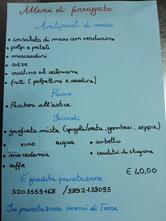 Menù di ferragosto
Antipasti di mare
• insalata di mare con verdurine
• polpi e patate
• moscardini
• cozze
• crostino al salmone
• fritti (polpettine e sardine)
Primo
• Paccheri all'astice
Secondi
• grigliata mista (spigola/orata, gamberi, seppia)
• vino • acqua • sorbetto
• macedonia • conditi di stagione
• caffè
E 40,00
E gradita prenotazione
3203553468 / 3392433095
Su prenotazione menù di Terra